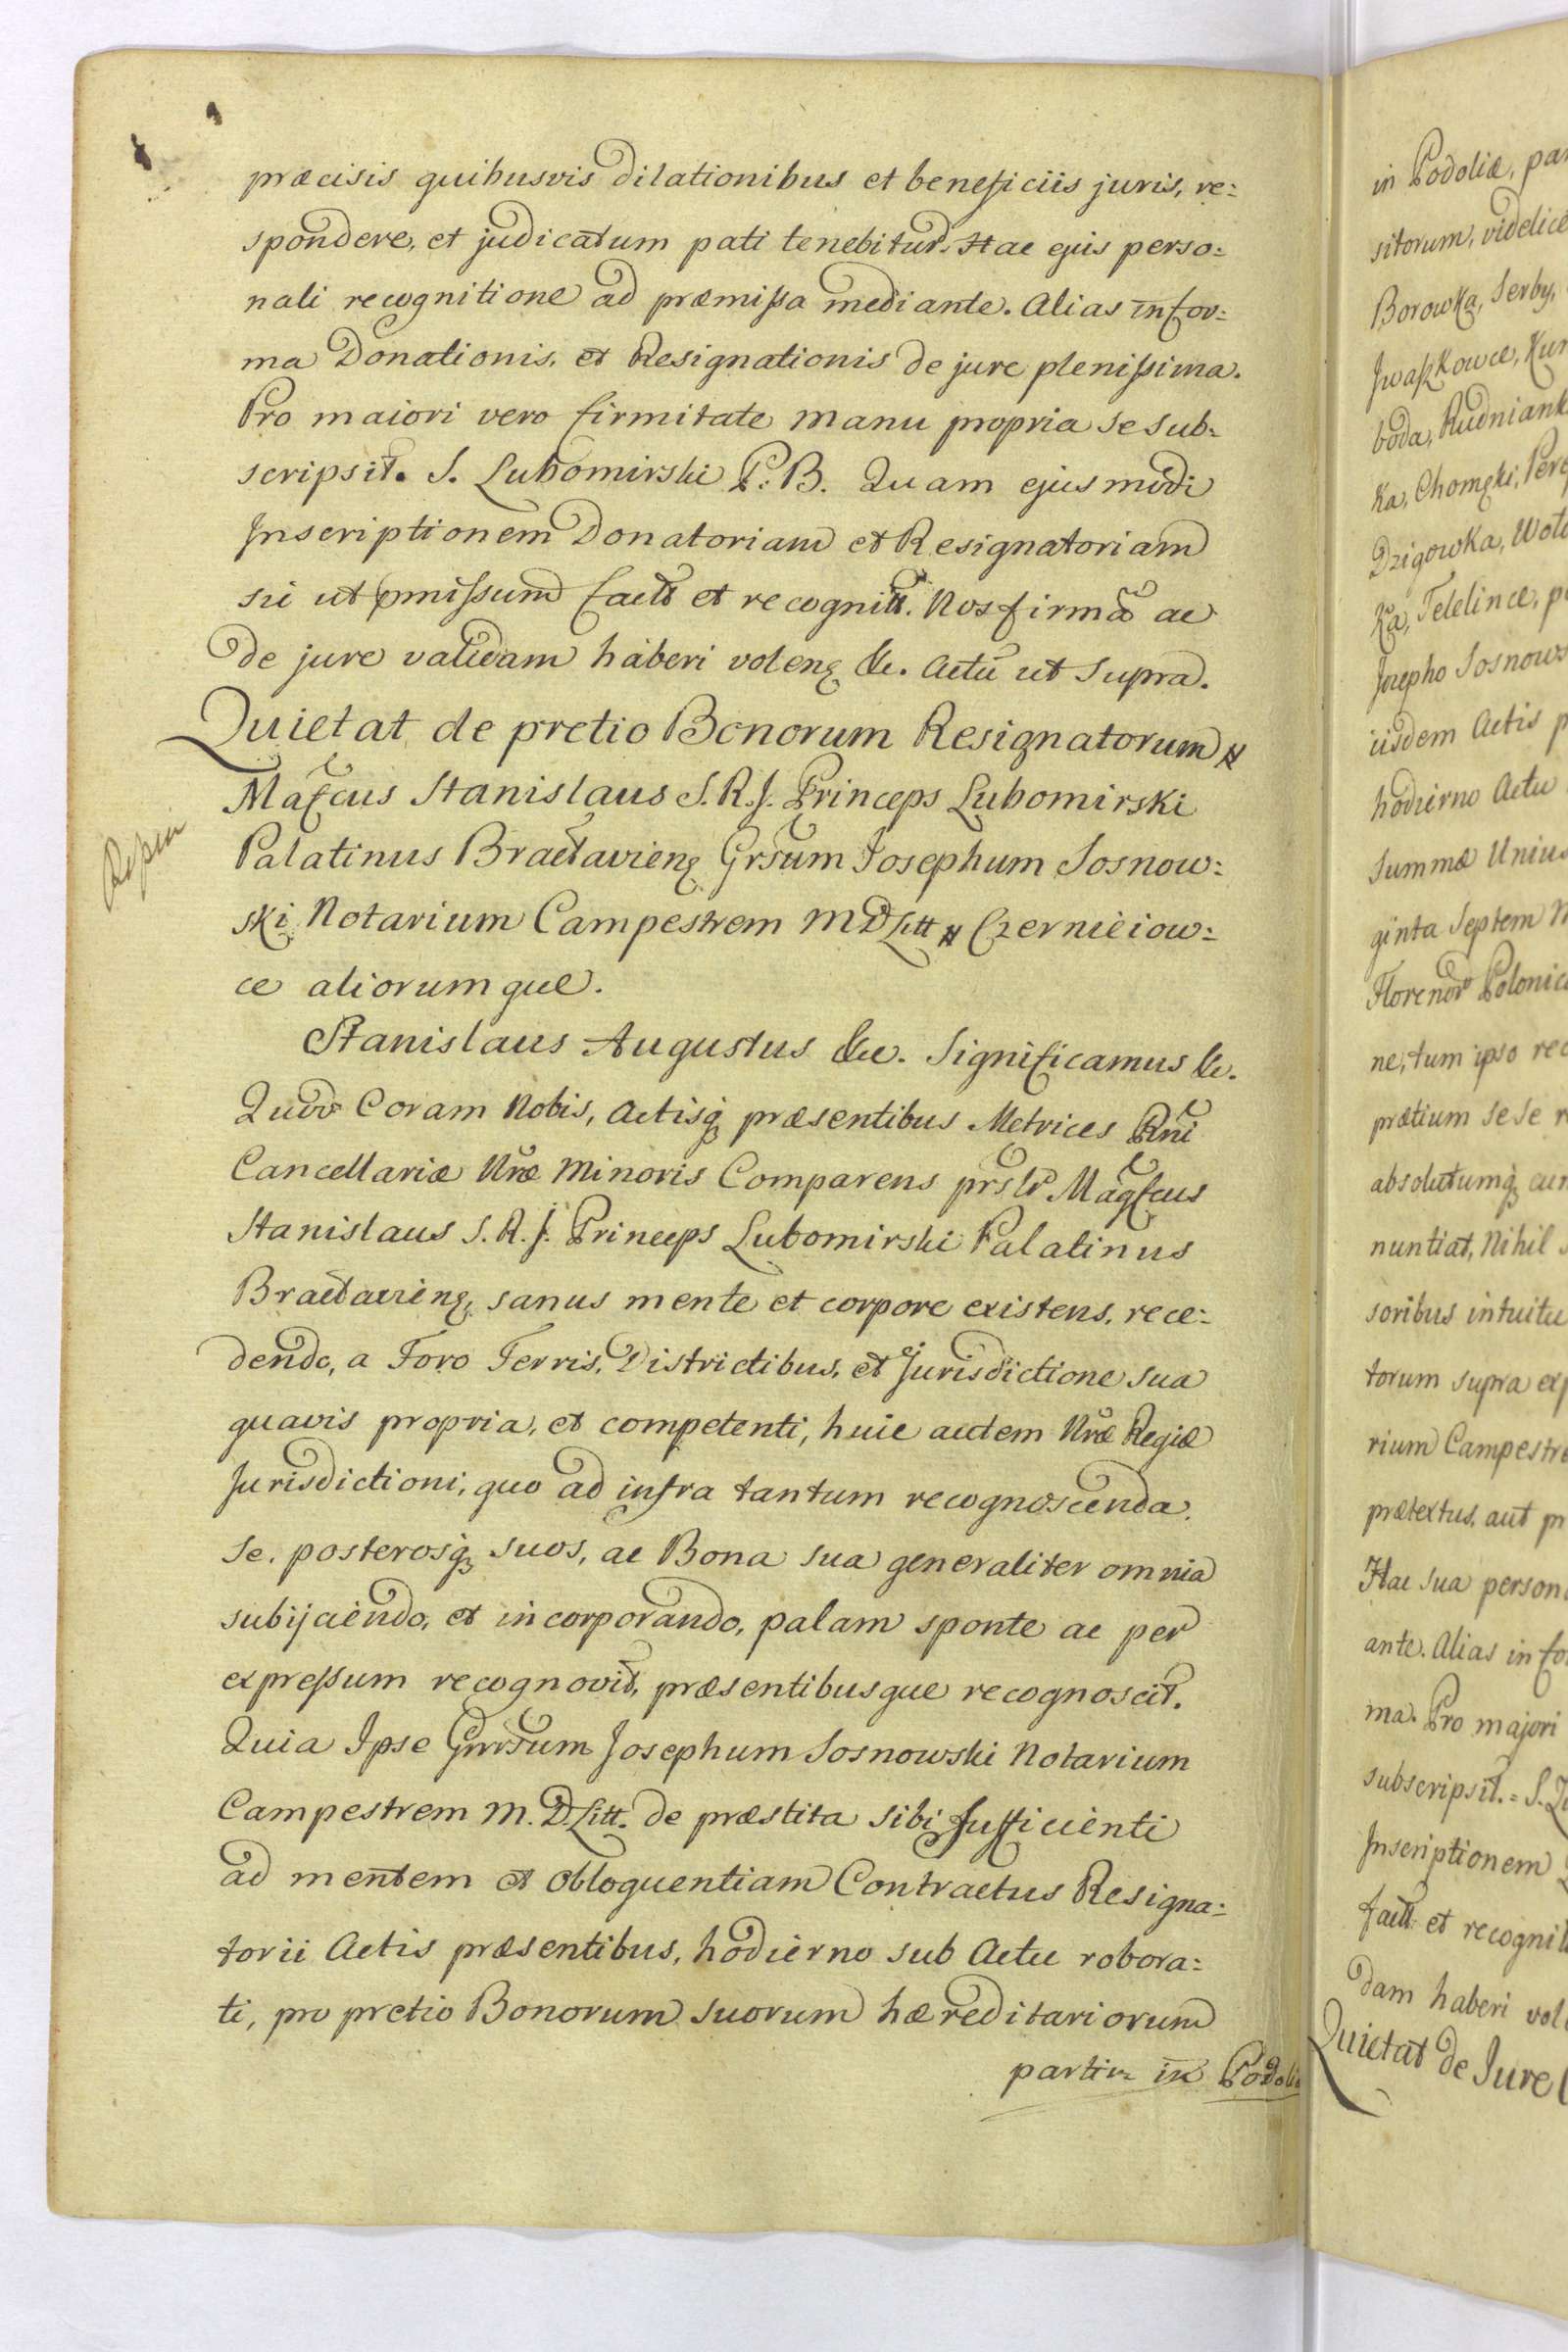 præcisis quibusvis dilationibus et beneficiis juris, re:
spondere, et judicatum pati tenebitur. Hac ejus perso:
nali recognitione ad præmissa mediante. Alias in for:
ma Donationis, et Resignationis de jure plenissima.
Pro maiori vero firmitate manu propria se sub:
scripsit. S. Lubomirski P: B. Quam ejusmodi
Inscriptionem Donatoriam et Resignatoriam
sic ut pmissum factt et recognitt. Nos firmã ac
de jure validam haberi volenꝫ &c. Actũ ut supra.
Quietat de pretio Bonorum Resignatorum
Mafcus Stanislaus S. R. J. Princeps Lubomirski
Palatinus Braclavienꝫ Grsum Josephum Sosnow:
ski Notarium Campestrem M D Litt Czernieiow:
ce aliorumque.
Stanislaus Augustus &c. Significamus &c.
Quod Coram Nobis, Actisqꝫ præsentibus Metrices Rni
Cancellariæ Nræ Minoris Comparens prslr Magfcus
Stanislaus S. R. J. Princeps Lubomirski Palatinus
Braclavienꝫ, sanus mente et corpore existens, rece:
dendo, a Foro Terris, Districtibus, et Jurisdictione sua
quavis propria, et competenti, huic autem Nræ Regiæ
Jurisdictioni, quo ad infra tantum recognoscenda,
se, posterosqꝫ suos, ac Bona sua generaliter omnia
subijciendo, et incorporando, palam sponte ac per
expressum recognovit, præsentibusque recognoscit.
Quia Ipse Gnrsum Josephum Sosnowski Notarium
Campestrem M. D. Litt. de præstita sibi sufficienti
ad mentem et obloquentiam Contractus Resigna:
torii Actis præsentibus, hodierno sub Actu robora:
ti, pro pretio Bonorum suorum hæreditariorum
partim in Podoliæ
in Podoliæ,
sitorum,
Borowka, Serby,
Jwaszkowce,
boda,
Ka,
Dzigowka,
Ka, Telelince,
Josepho
iisdem Actis
hodierno Actu
Summæ Unius
ginta Septem
Florenor Polonica
ne, tum ipso
prætium sese
absolutumqꝫ
nuntiat, Nihil
soribus intuitu
torum supra
rium
prætextus, aut
Hac sua
ante. Alias in
ma. Pro majori
subscripsit. = S.
Inscriptionem
factt et
dam haberi
Quietat de Jure